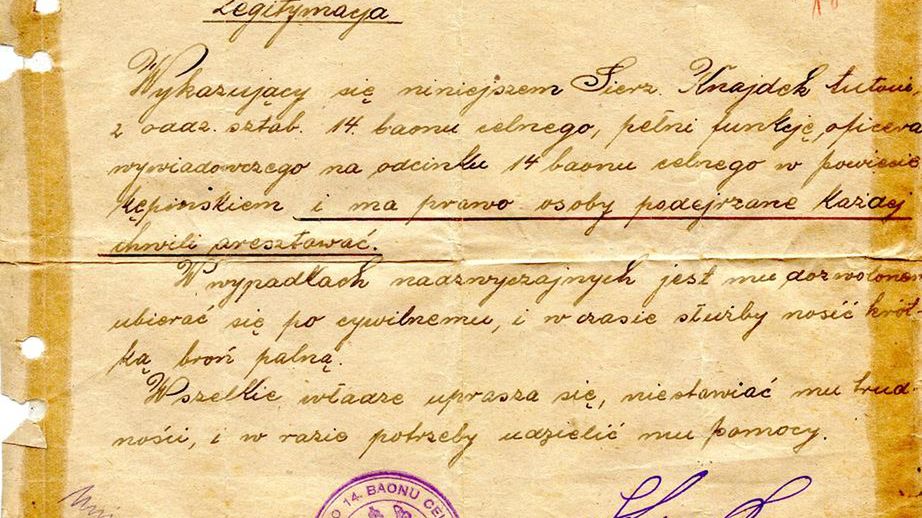 Legitymacja
Wykazujący się niniejszem Sierz. Knajdek
z oddz. sztab. 14. baonu celnego, pełni funkcję oficera
wywiadowczego na odcinku 14 baonu celnego w powiecie
kępińskiem i ma prawo osoby podejrzane każdej
chwili aresztować.
W wypadkach nadzwyczajnych jest mu dozwolone
ubierać się po cywilnemu, i w czasie służby nosić krót-
ką broń palną.
Wszelkie władze uprasza się, niestawiać mu trud
ności, i w razie potrzeby udzielić mu pomocy.
O 14. BAONU CEL